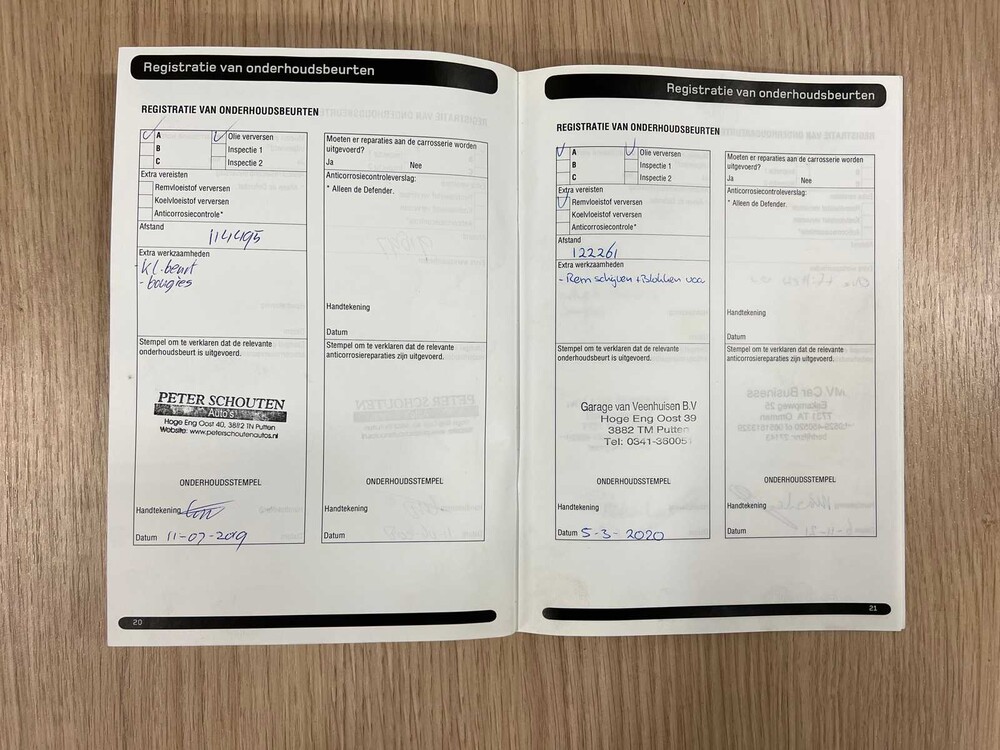 Registratie van onderhoudsbeurten
REGISTRATIE VAN ONDERHOUDSBEURTEN
A
Olie verversen
B
Inspectie 1
C
Inspectie 2
Extra vereisten
Remvloeistof verversen
Koelvloeistof verversen
Anticorrosiecontrole*
Afstand
114495
Extra werkzaamheden
- kl. beurt
- bougies
Stempel om te verklaren dat de relevante
onderhoudsbeurt is uitgevoerd.
PETER SCHOUTEN
Auto's
Hoge Eng Oost 40, 3882 TN Putten
Website: www.peterschoutenautos.nl
ONDERHOUDSSTEMPEL
Handtekening
Datum 11-07-2019
Moeten er reparaties aan de carrosserie worden
uitgevoerd?
Ja Nee
Anticorrosiecontroleverslag:
* Alleen de Defender.
Handtekening
Datum
Stempel om te verklaren dat de relevante
anticorrosiereparaties zijn uitgevoerd.
ONDERHOUDSSTEMPEL
Handtekening
Datum
20
Registratie van onderhoudsbeurten
REGISTRATIE VAN ONDERHOUDSBEURTEN
A
Olie verversen
B
Inspectie 1
C
Inspectie 2
Extra vereisten
Remvloeistof verversen
Koelvloeistof verversen
Anticorrosiecontrole*
Afstand
122261
Extra werkzaamheden
- Rem schijven + Blokken voor
Stempel om te verklaren dat de relevante
onderhoudsbeurt is uitgevoerd.
Garage van Veenhuisen B.V
Hoge Eng Oost 39
3882 TM Putten
Tel: 0341-360051
ONDERHOUDSSTEMPEL
Handtekening
Datum 5-3-2020
Moeten er reparaties aan de carrosserie worden
uitgevoerd?
Ja Nee
Anticorrosiecontroleverslag:
* Alleen de Defender.
Handtekening
Datum
Stempel om te verklaren dat de relevante
anticorrosiereparaties zijn uitgevoerd.
ONDERHOUDSSTEMPEL
Handtekening
Datum
21